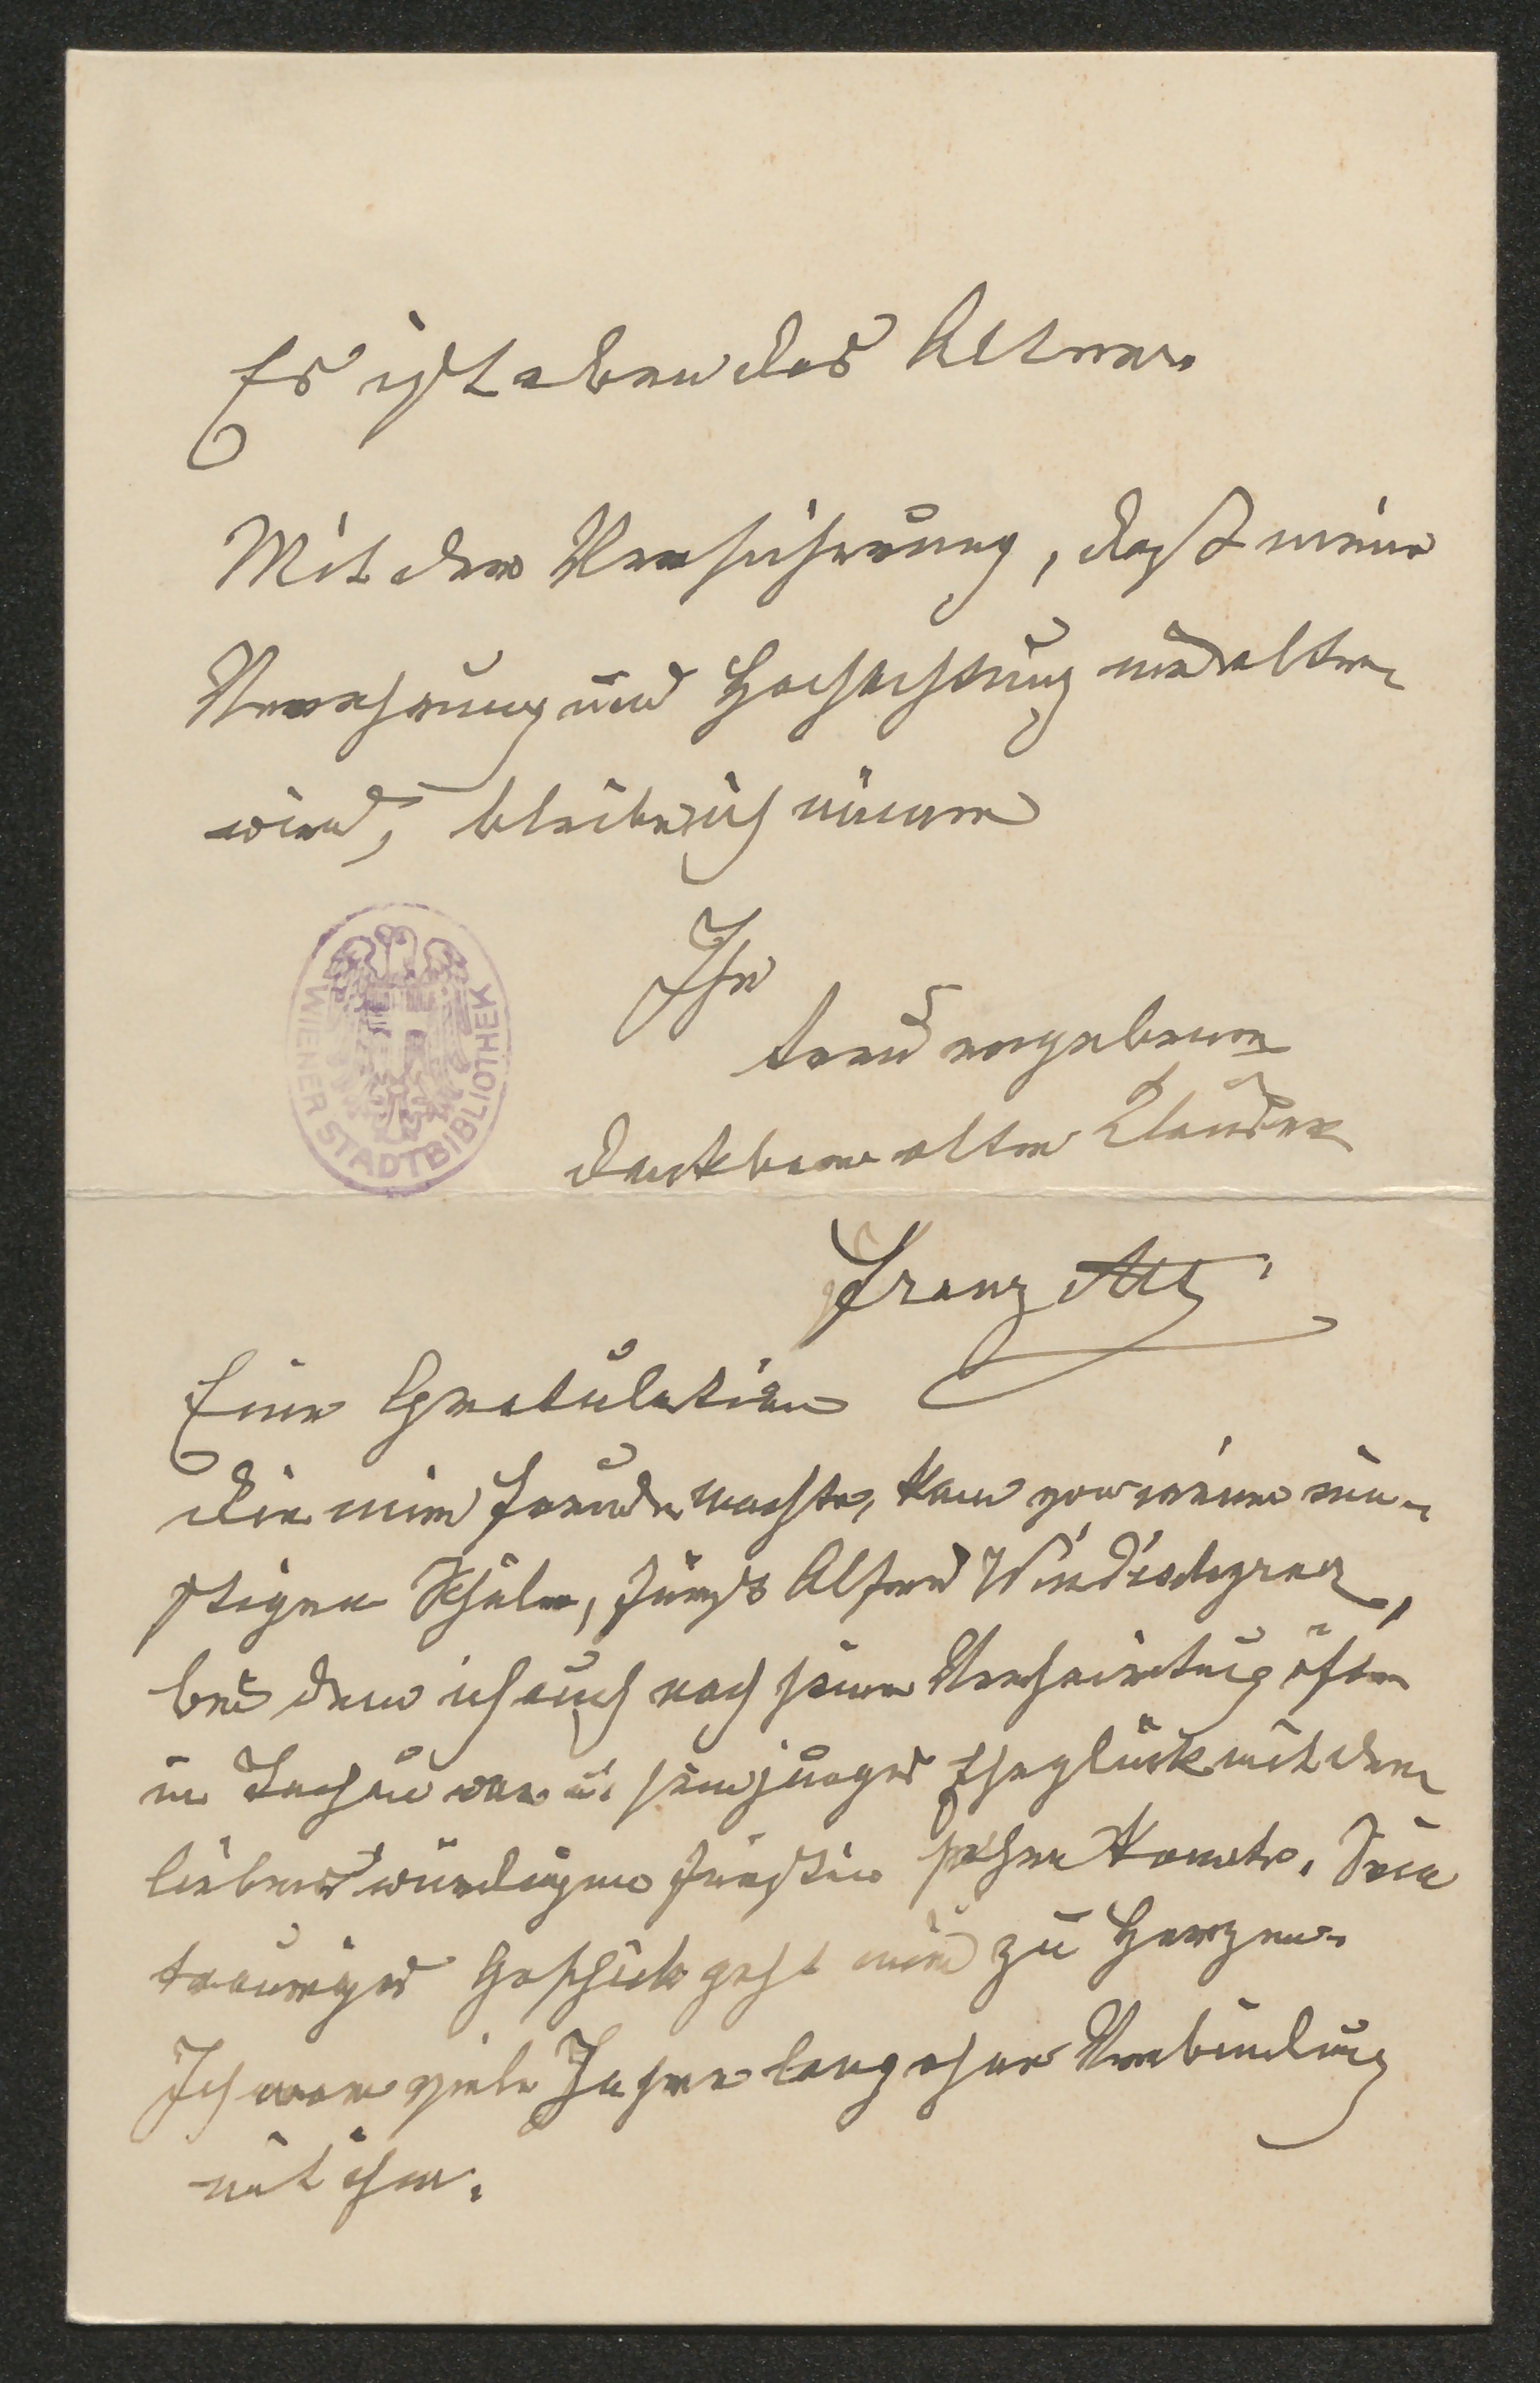 Es ist eben das Alter.
Mit der Versicherung, daß meine
Verehrung und Hochachtung nie alter
wird, bleibe ich immer
Ihr
treu ergebener
dankbarer alter
Franz Alt
WIENER STADTBIBLIOTHEK
Eine Gratulation
die mir Freude machte, kam von meinem ein-
stigen Schüler, Fürst Alfred Windischgraez,
bei dem ich auch nach seiner Verheiratung öfter
in Tachau war u. sein junges Eheglück mit der
liebenswürdigen Fürstin sehen konnte. Sein
trauriges Geschick geht mir zu Herzen.
Ich war viele Jahre lang ohne Verbindung
mit ihm.